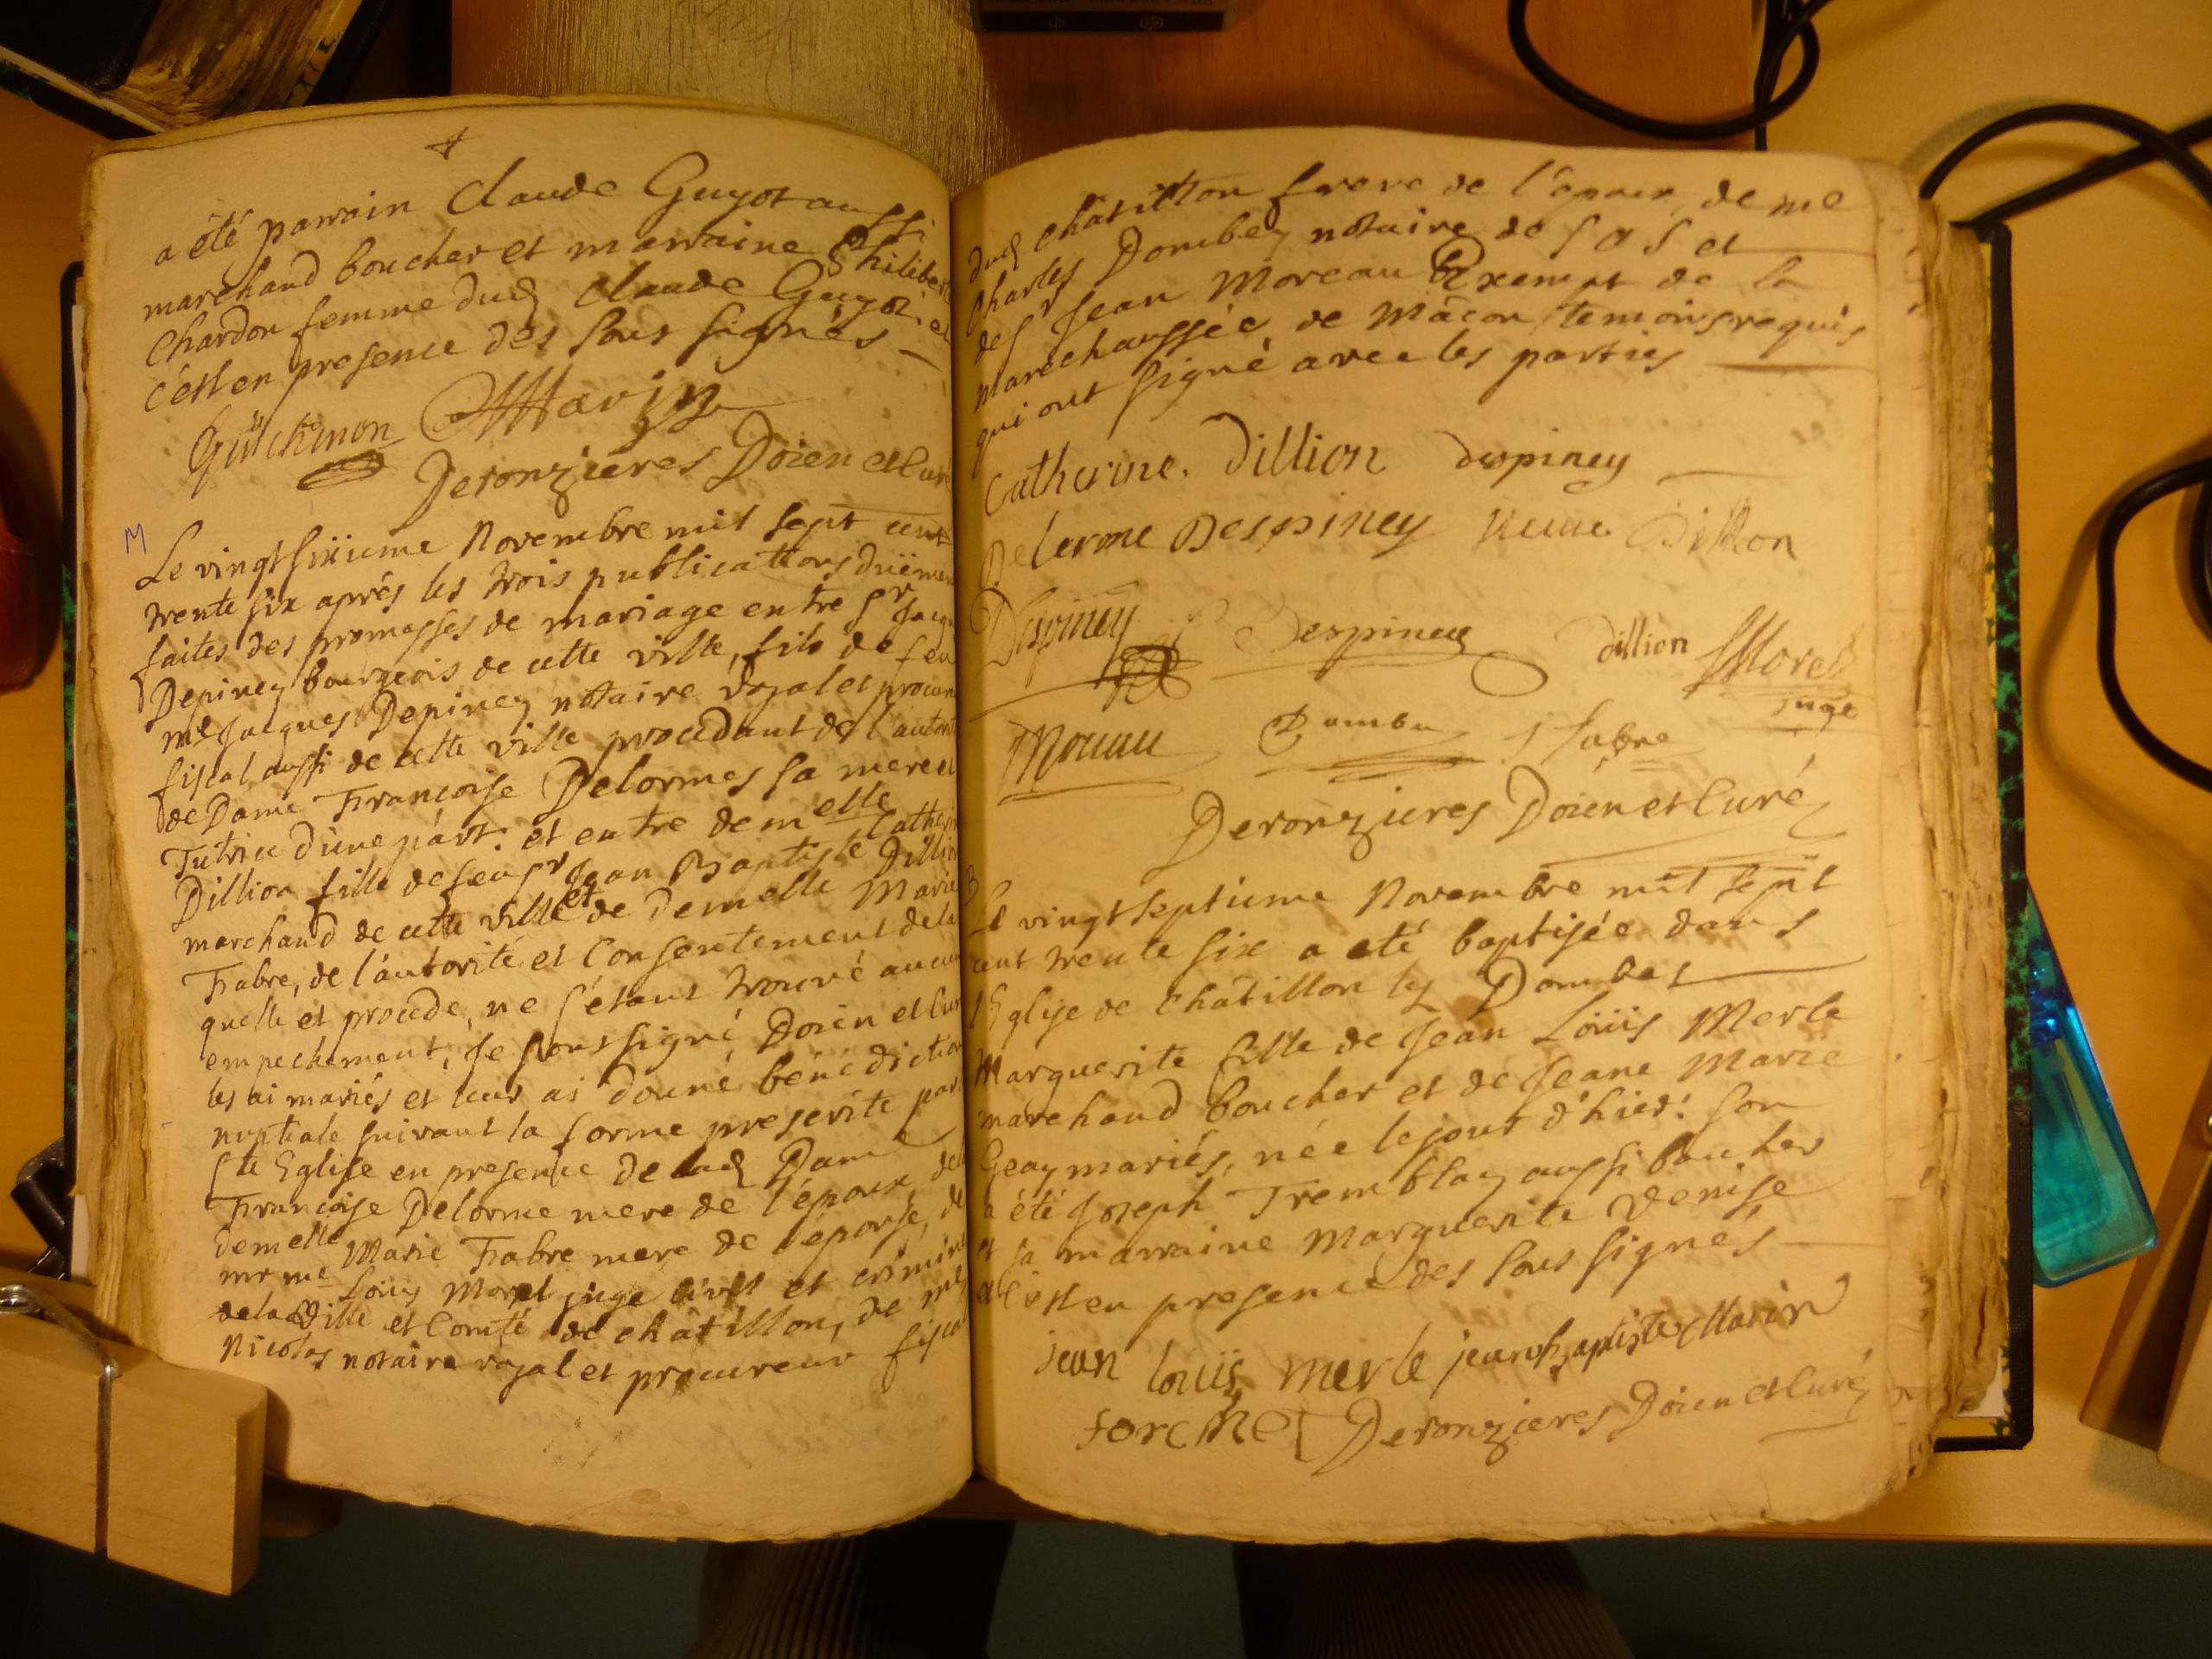 a été parrain Claude Guyot aussi
marchand boucher et marraine Philiber
Chardon femme dud Claude Guyot. et
c'est en presence des sous signés
Guichenon Marin
Deronzieres Doien et Curé
M
Le vingt sixieme Novembre mil sept cent
trente six aprés les trois publications duëmen
faites des promesses de mariage entre Sr Jacqu
Depiney bourgeois de cette ville, fils de feu
me Jacques Depiney notaire royal et procure
fiscal aussi de cette ville procedant de l'autori
de Dame Françoise Delormes sa mere et
Tutrice d'une part: et entre demelle Catheri
Dillion fille de feu Sr Jean Baptiste Dillio
marchand de cette ville et de demelle Marie
Fabre, de l'autorité et Consentement de la
quelle et procede, ne s'étant trouvé aucun
empechement, Je soussigné Doien et Cur
les ai mariés et leur ai donné bénédiction
nuptiale suivant la forme prescrite par
Ste Eglise en presence de lad Dame
Françoise Delorme mere de l'époux, de
demelle Marie Fabre mere de l'épouse, de
me Loüis Morel juge civil et crimine
de la Ville et Comté de châtillon, de me
Nicolas notaire royal et procureur fiscal
dud Châtillon frere de l'epoux, de me
Charles Dombey notaire de S A S et
de Sr Jean Moreau Exempt de la
marechaussée de Mâcon, temoins requis
qui ont signé avec les parties
Catherine. Dillion depiney
Delorme Despiney Dillion
Despiney Despiney dillion Morel
juge
Moreau Dombey Fabre
Deronzieres Doien et Curé
B
Le vingt septieme Novembre mil sept
cent trente six a eté baptisée dans
l'Eglise de Châtillon les Dombes
Marguerite fille de Jean Loüis Merle
marchand boucher et de Jeane Marie
Geay mariés, née le jour d'hier: son
a été Joseph Tremblay aussi boucher
et sa marraine Marguerite Denise
et c'est en presence des sous signés
jean louis merle jean baptiste Marin
forchet Deronzieres Doien et Curé